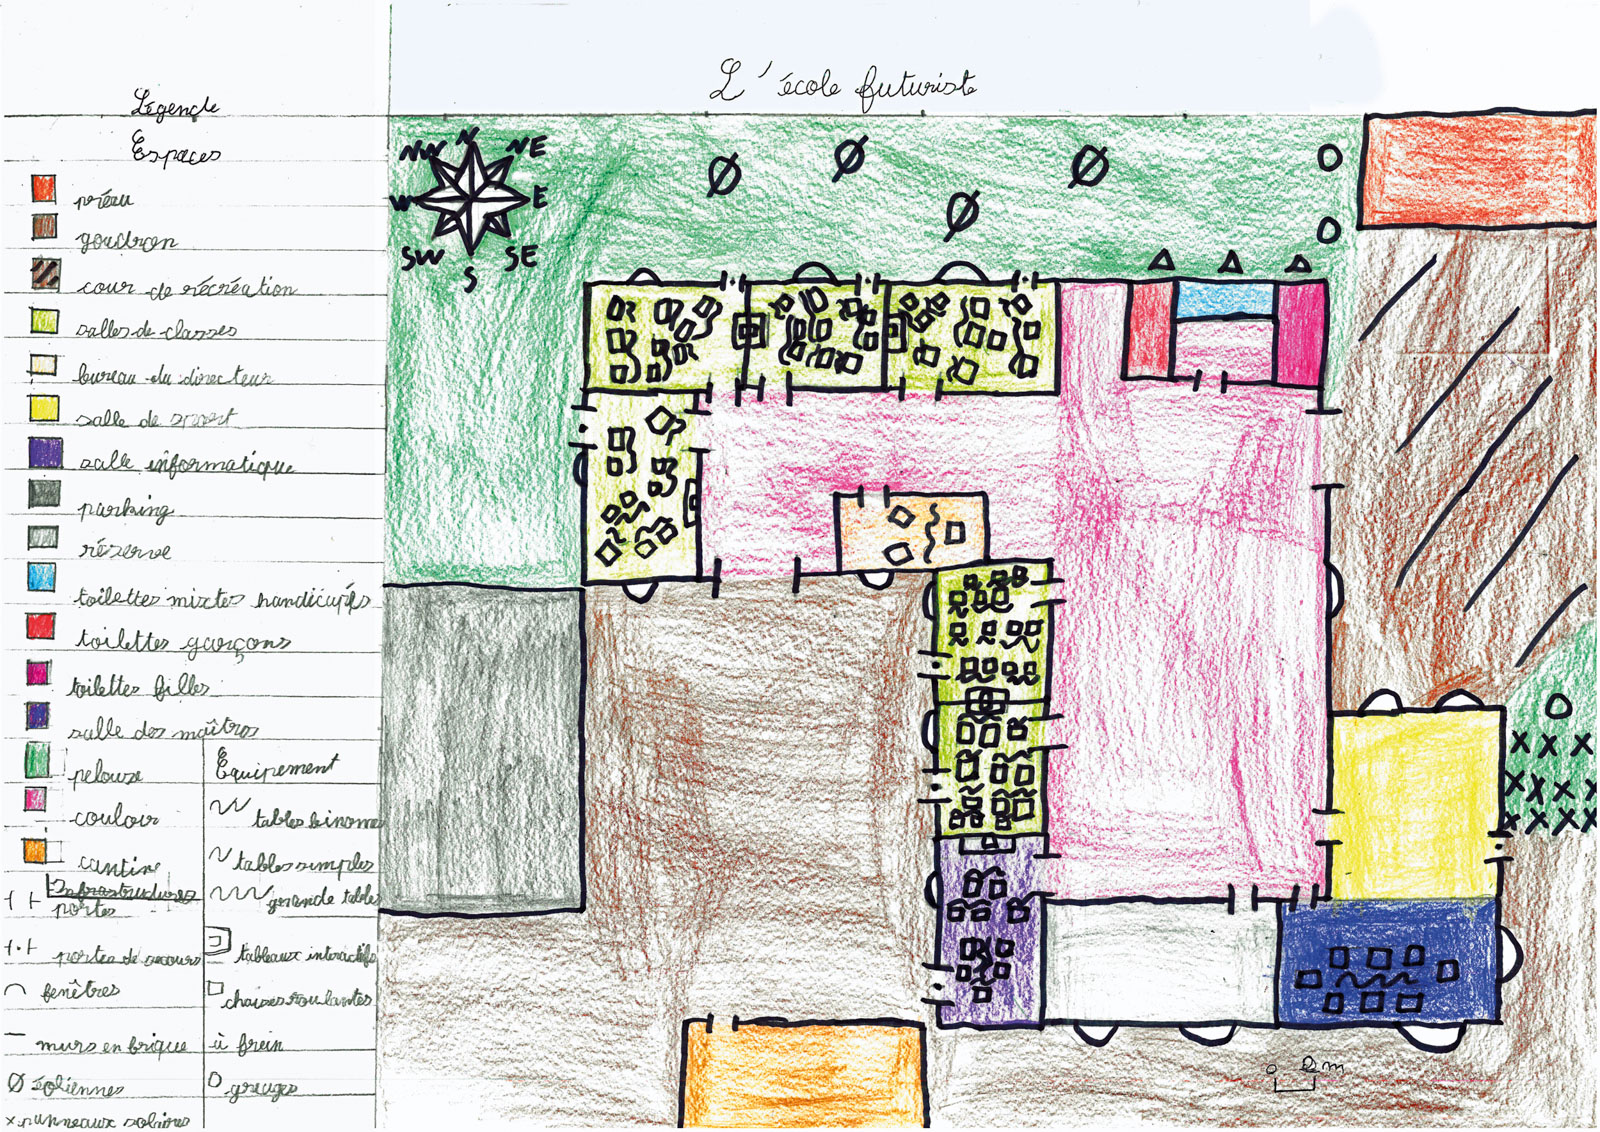 L'école futuriste
Légende
Espaces
préau
goudron
cour de récréation
salles de classes
bureau du directeur
salle de sport
salle informatique
parking
réserve
toilettes mixtes handicapés
toilettes garçons
toilettes filles
salle des maîtres
pelouze
couloir
cantine
Infrastructures
portes
portes de secours
fenêtres
murs en brique
éoliennes
x panneaux solaires
Equipement
tables binome
tables simples
grande table
tableaux interactifs
chaises roulantes
à frein
N
NE
E
SE
S
SW
W
NW
0